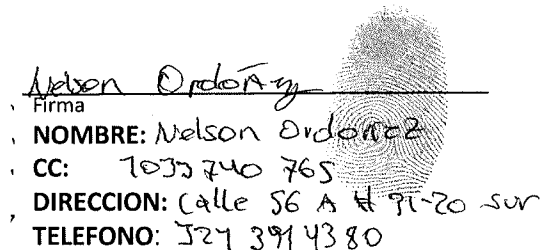 Nelson Ordoñez
Firma
NOMBRE: Nelson Ordoñez
CC: 1033 740 765
DIRECCION: Calle 56 A # 91-20 Sur
TELEFONO: 321 391 4380